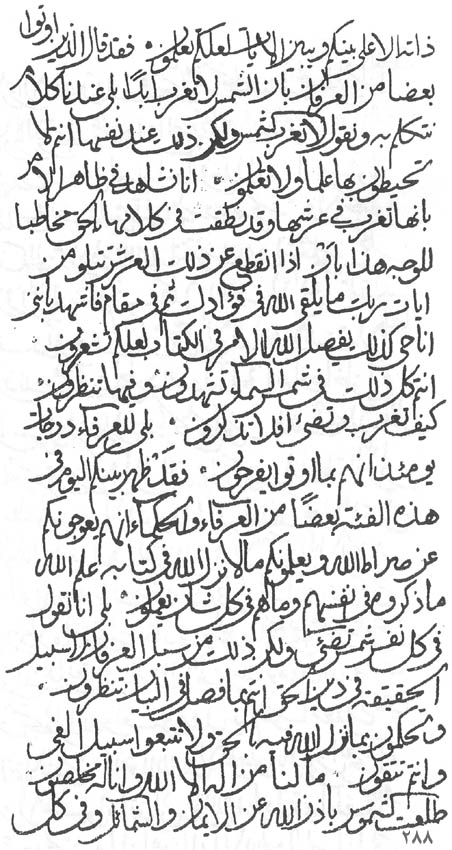 ذانه الا على بينكم وبين الايات لعلكم تعلمون فقد قال الذين اوتوا
بعضا من العرفان بان الشمس لا تغرب ابدًا بلى عندنا كلام
نتكلم به ونقول لا تغرب شمس ولكن ذلك عند نفسها انتم لا
تحيطون بها علما ولا تعلمون انا نشاهد في ظاهر الامر
بانها تغرب في عرشها وقد نطقت في كلامها بالحق مخاطبا
للوجه هذا بان اذا انقطع عن ذلك العرش تتلو من
ايات ربك ما يلقى الله في فؤادك ثم في مقام فاشهد بانني
انا حي كذلك يفصل الله الامر في الكتاب لعلكم تشعرون
انتم كل ذلك في شمس السماء تشهدون وفيها تنظرون
كيف تغرب وتضئ افلا تذكرون بلى للعرفاء درجات
يومئذ انهم بما اوتوا يفرحون فقد ظهر بينكم اليوم في
هذه الفئة بعضًا من العرفاء والحكماء انهم يعوجونكم
عن صراط الله ويعلمونكم ما لا نزل الله في كتابه علم الله
ما ذكروه في نفسهم وما هم في كل شان يعملون بلى انا نقول
في كل نفس شمس تضئ ولكن ذلك من سبل العرفان لا سبيل
الحقيقة في دين الحق انتم بما فصل في البيان تنظرون
وتحكمون بما نزل الله فيه بالحق ولا تتبعوا سبيل الغي
وانتم تتقون ما لنا من اله الا الله وانا له مخلصون
طلعت شموس باذن الله عن الايمن والشمائل وفي كل
٢٨٨